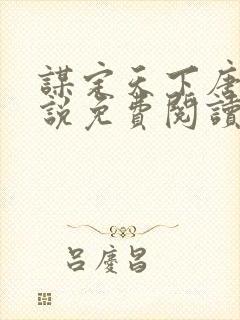 謀定天下唐
說免費閱讀
呂慶昌